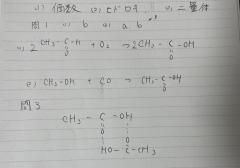 (1) 価数 (2) ヒドロキ (3) 二量体
問1 (1) b (2) a, b
(1) 2 CH₃-C-H + O₂ → 2CH₃-C-OH
O O
(2) CH₃-OH + CO → CH₃-C-OH
O
問3
CH₃-C-OH
O O
HO-C-CH₃